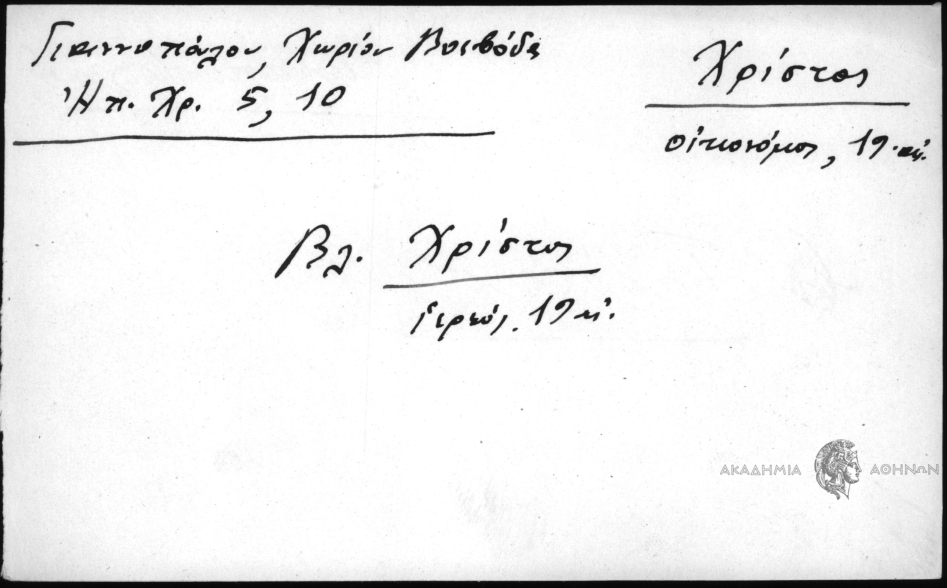 Γιαννοπούλου, Χωρίον Βοεβόδα
Ἠπ. Χρ. 5, 10
Χρίστος
οἰκονόμος, 19 αἰ.
Βλ. Χρίστος
ἱερεύς, 19 αἰ.
ΑΚΑΔΗΜΙΑ ΑΘΗΝΩΝ